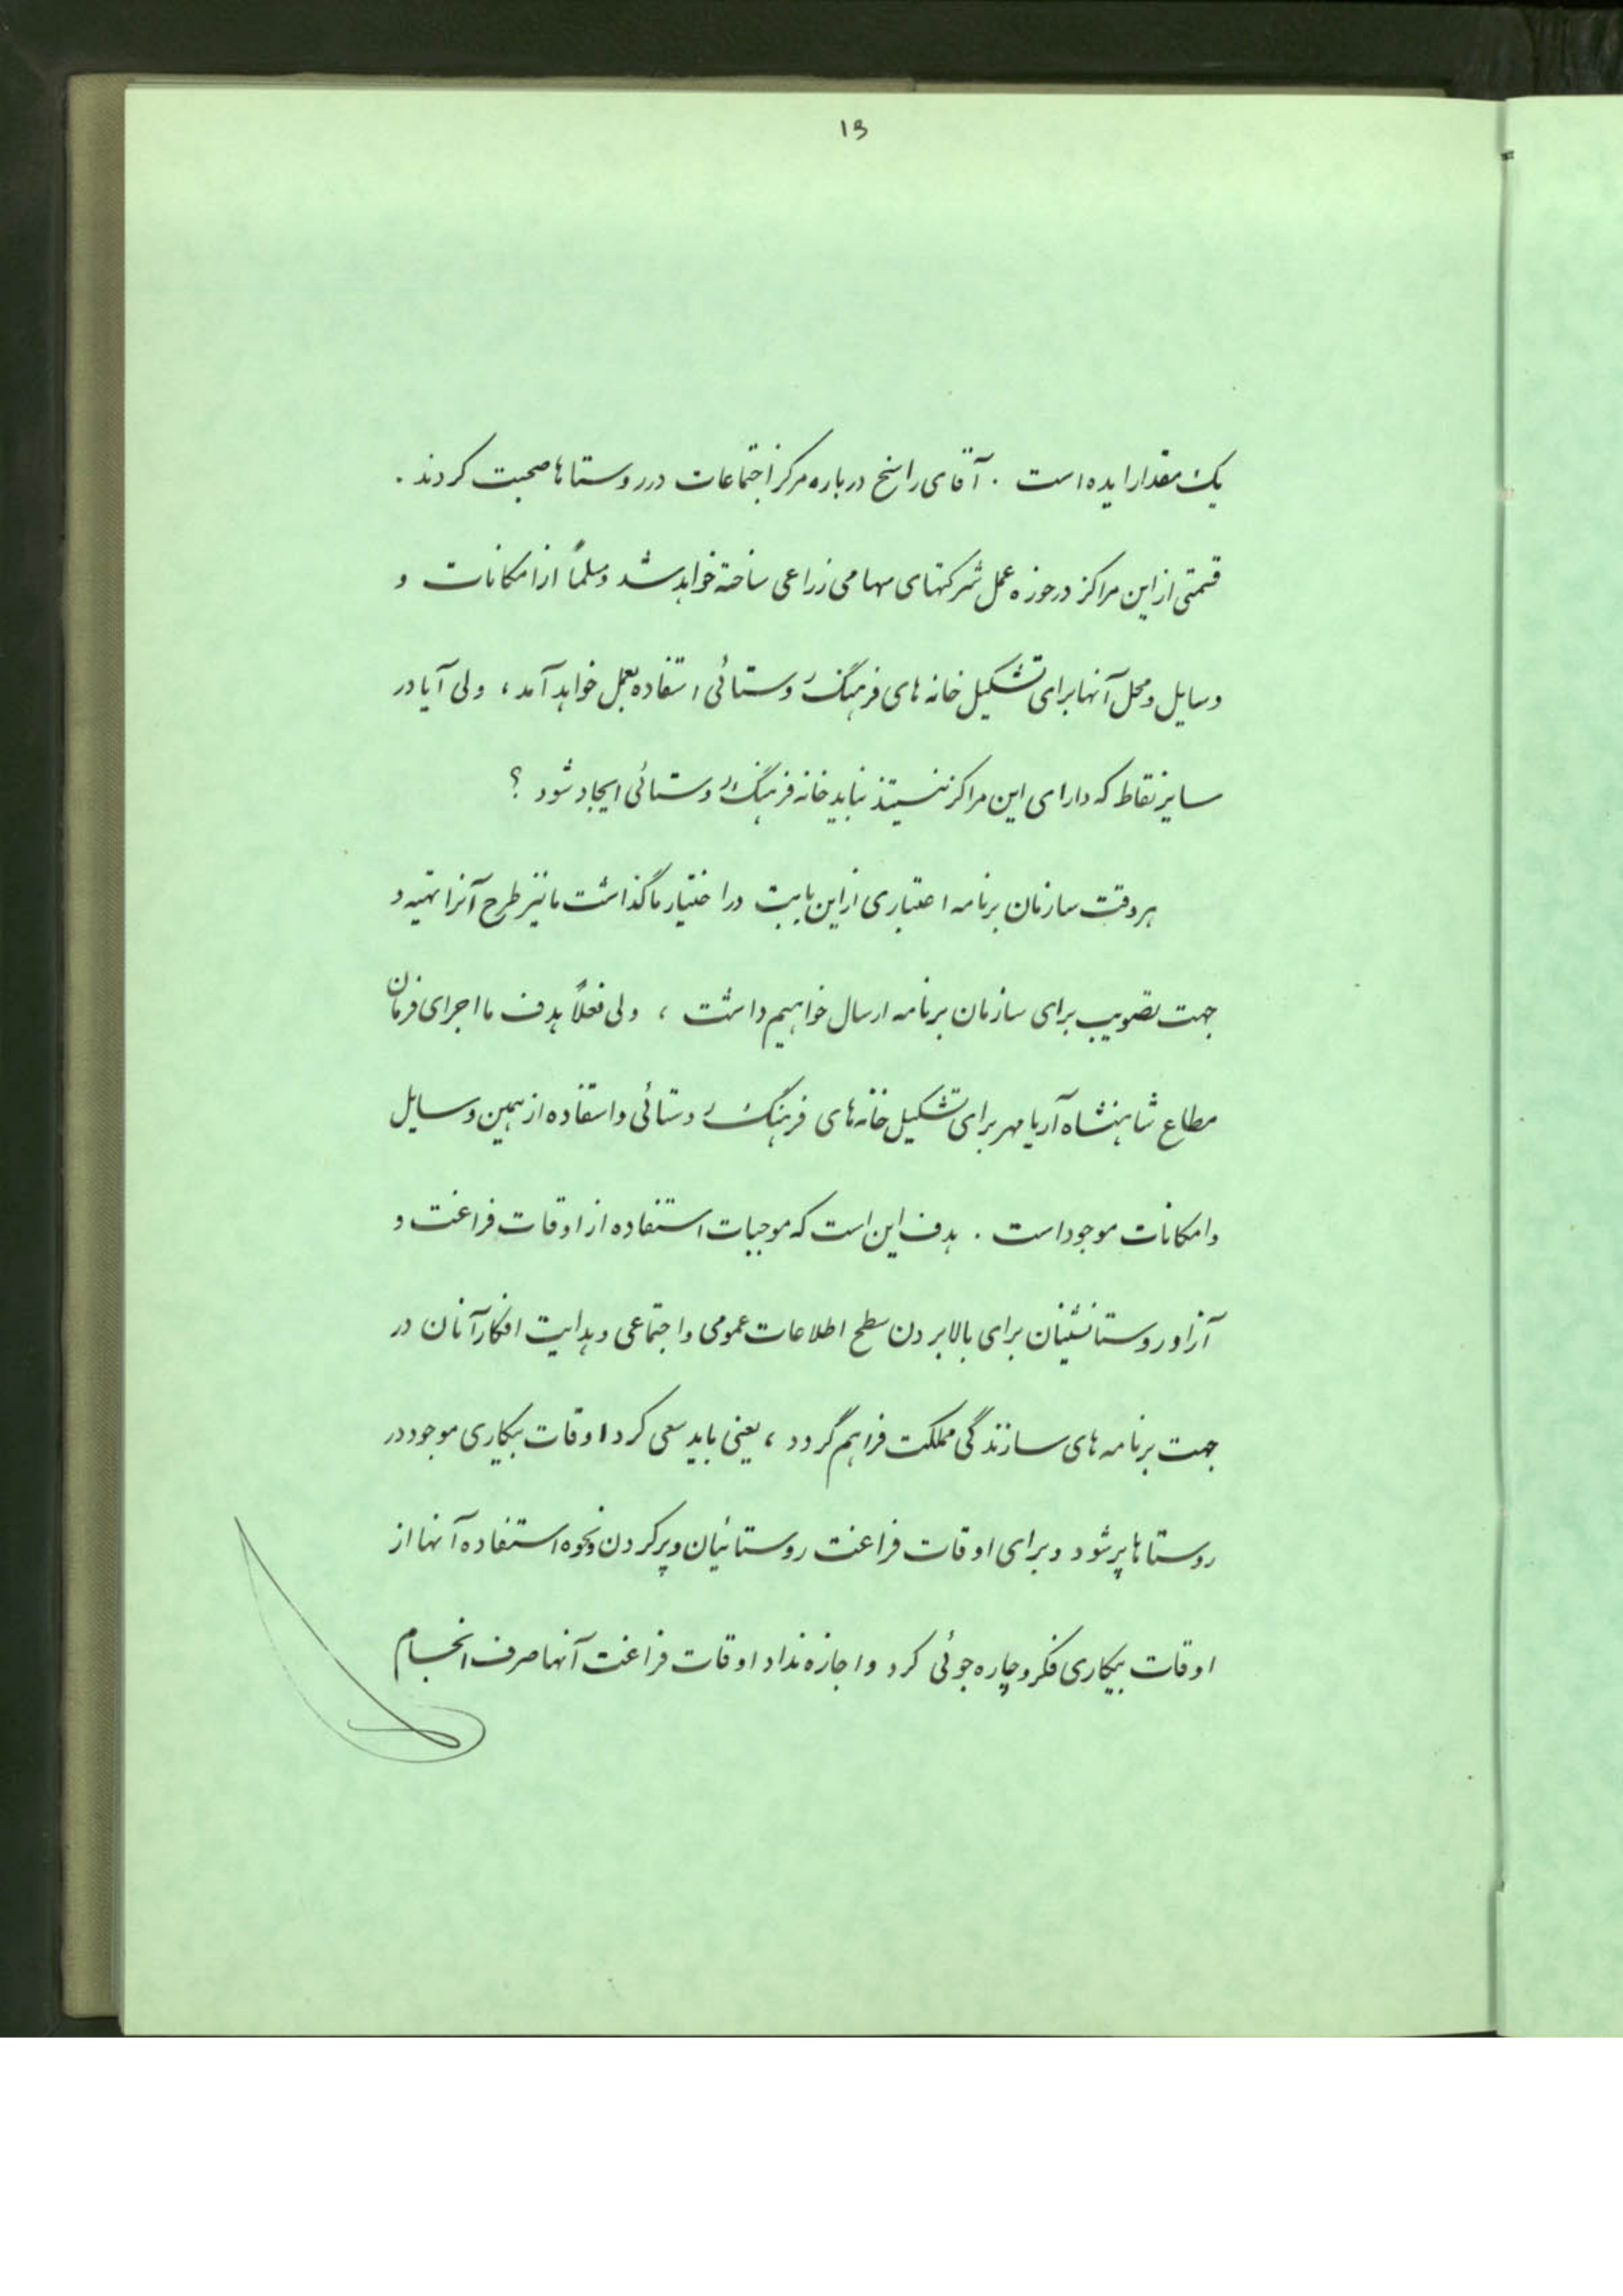 ۱۵
یک مقدار ایده است . آقای راسخ درباره مرکز اجتماعات در روستاها صحبت کردند .
قسمتی از این مراکز در حوزه عمل شرکتهای سهامی زراعی ساخته خواهد شد و مسلماً از امکانات و
وسایل و محل آنها برای تشکیل خانه های فرهنگ روستائی استفاده بعمل خواهد آمد ، ولی آیا در
سایر نقاط که دارای این مراکز نیستند نباید خانه فرهنگ روستائی ایجاد شود ؟
هر وقت سازمان برنامه اعتباری از این بابت در اختیار ما گذاشت ما نیز طرح آنرا تهیه و
جهت تصویب برای سازمان برنامه ارسال خواهیم داشت ، ولی فعلاً هدف ما اجرای فرمان
مطاع شاهنشاه آریامهر برای تشکیل خانه های فرهنگ روستائی و استفاده از همین وسایل
و امکانات موجود است . هدف این است که موجبات استفاده از اوقات فراغت و
آزاد روستانشینان برای بالا بردن سطح اطلاعات عمومی و اجتماعی و هدایت افکار آنان در
جهت برنامه های سازندگی مملکت فراهم گردد ، یعنی باید سعی کرد اوقات بیکاری موجود در
روستاها پر شود و برای اوقات فراغت روستائیان و پر کردن و نحوه استفاده آنها از
اوقات بیکاری فکر و چاره جوئی کرد و اجازه نداد اوقات فراغت آنها صرف انجام